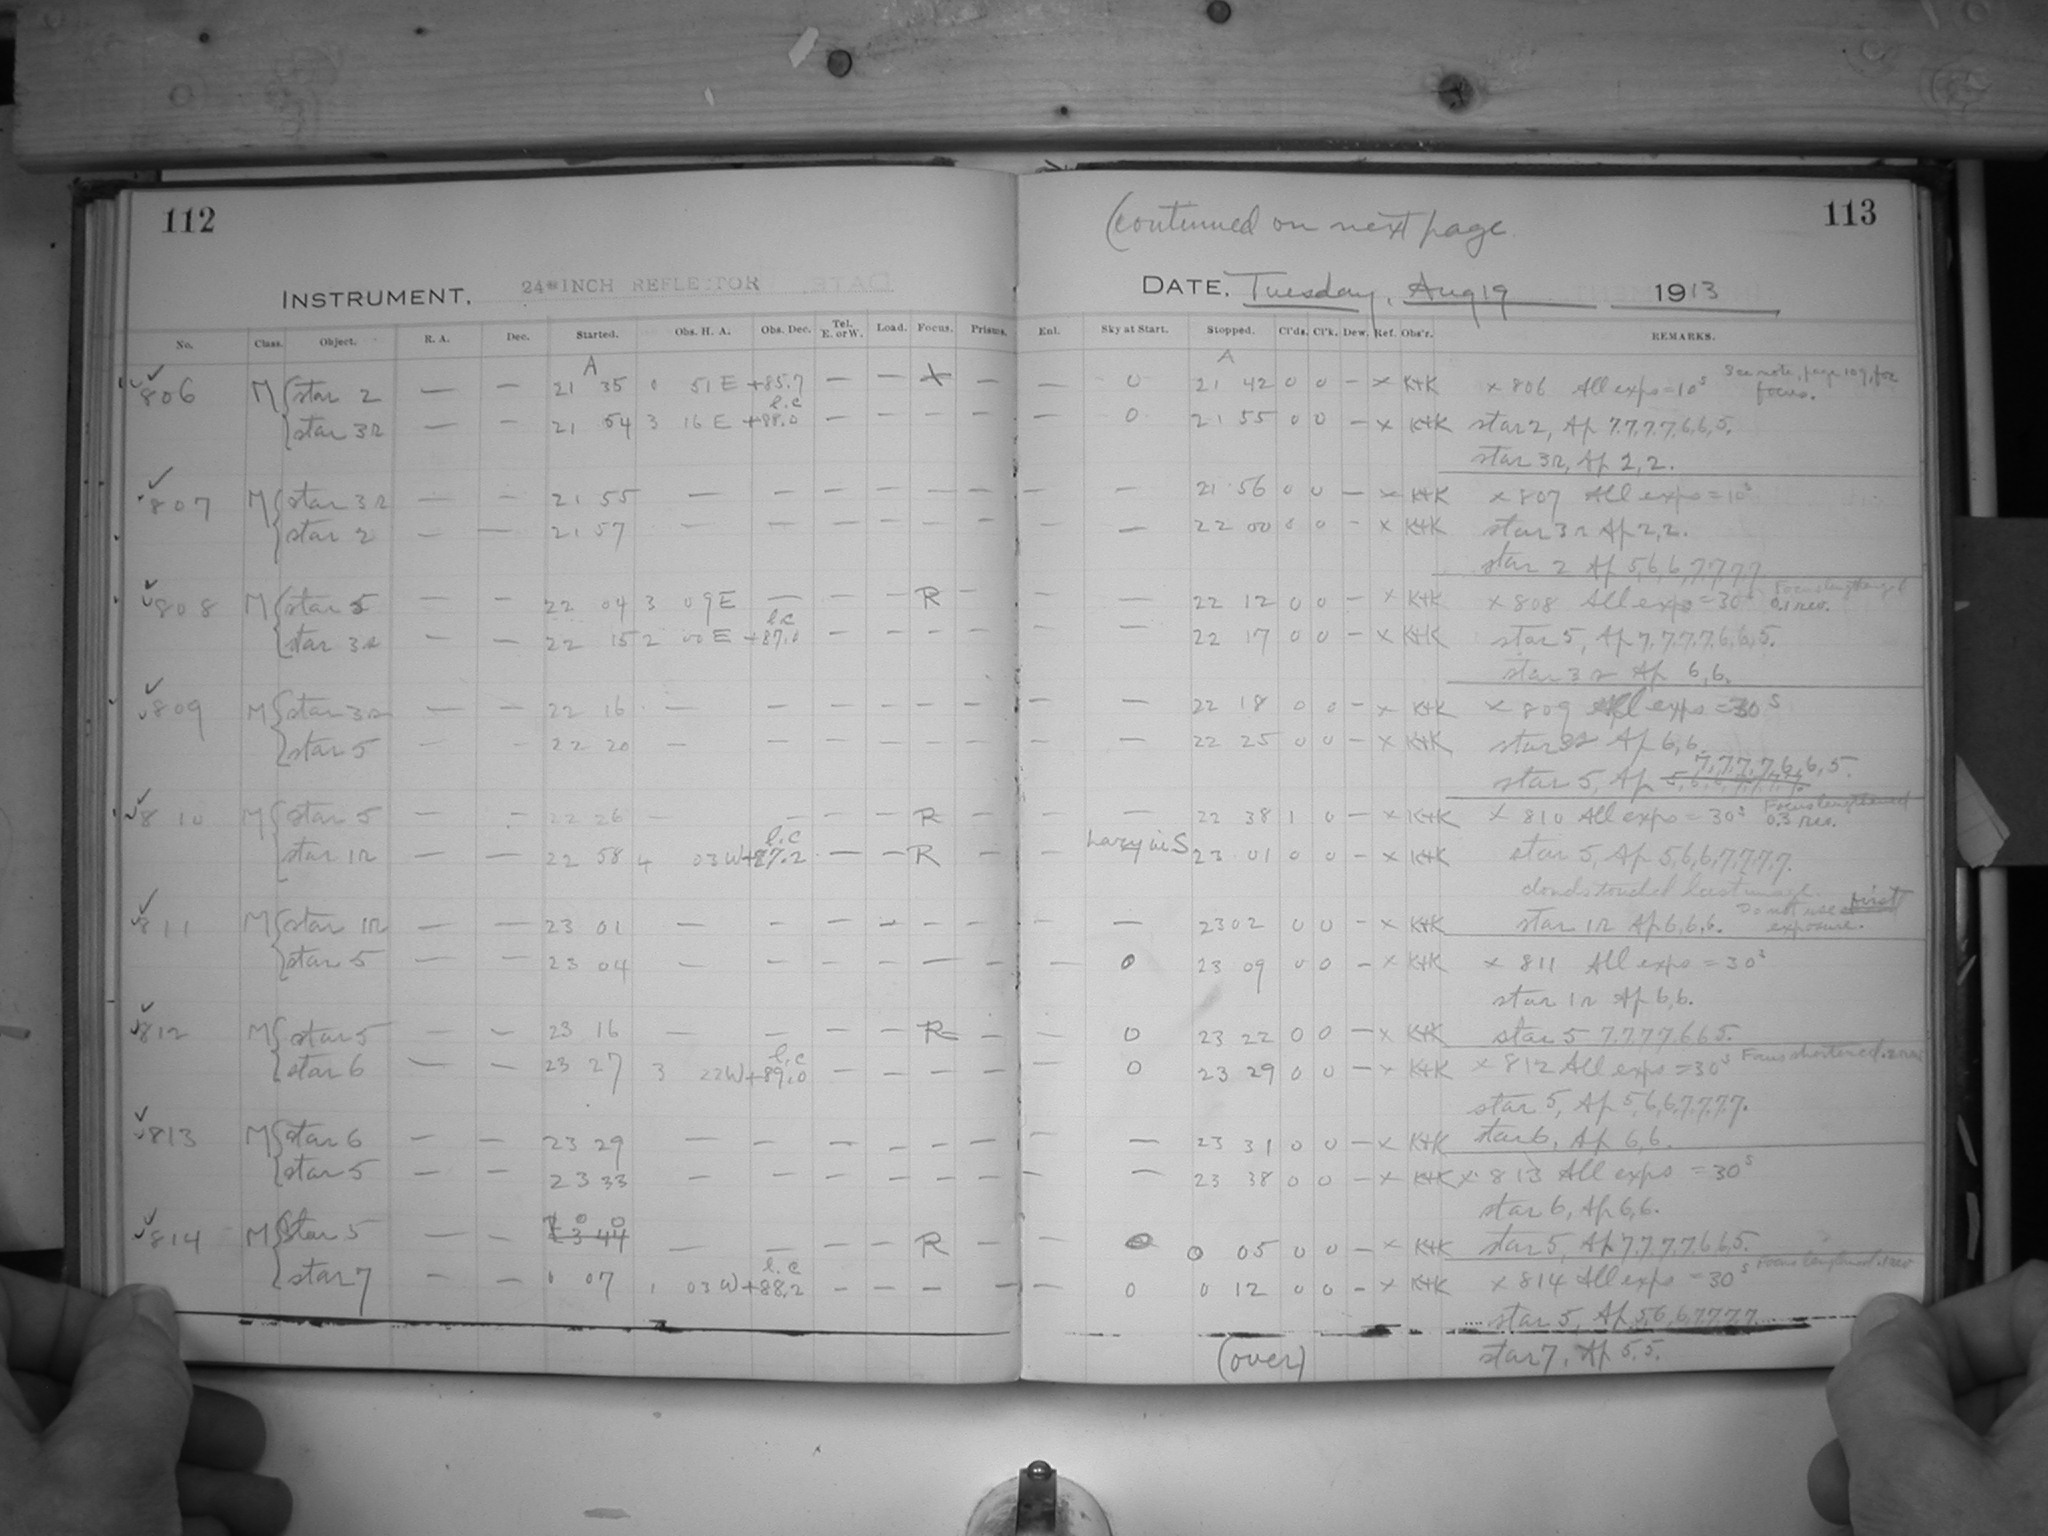 112
INSTRUMENT. 24-INCH REFLECTOR
No. Class. Object. R. A. Dec. Started. Obs. H. A. Obs. Dec. Tel. E. or W. Load. Focus. Prisms.
A
✓806 M star 2 — — 21 35 0 51 E +85.7 — — X —
l.c
star 3r — — 21 54 3 16 E +88.0 — — — —
✓807 M star 3r — — 21 55 — — — — — —
star 2 — — 21 57 — — — — — —
✓808 M star 5 — — 22 04 3 09 E — — — R —
l.c
star 3r — — 22 15 2 00 E +87.0 — — — —
✓809 M star 3r — — 22 16 — — — — — —
star 5 — — 22 20 — — — — — —
✓810 M star 5 — — 22 26 — — — — R —
l.c
star 1r — — 22 58 4 03 W +87.2 — — R —
✓811 M star 1r — — 23 01 — — — — — —
star 5 — — 23 04 — — — — — —
✓812 M star 5 — — 23 16 — — — — R —
l.c
star 6 — — 23 27 3 22 W +89.0 — — — —
✓813 M star 6 — — 23 29 — — — — — —
star 5 — — 23 33 — — — — — —
✓814 M star 5 — — 23 44 — — — — R
l.c
star 7 — — 0 07 1 03 W +88.2 — — — —
(continued on next page 113
DATE. Tuesday, Aug 19 1913
Enl. Sky at Start. Stopped. Cl'ds. Cl'k. Dew. Ref. Obs'r. REMARKS.
A
— 0 21 42 0 0 — x K+K x 806 All expo = 10s See note, page 109, for focus.
— 0 21 55 0 0 — x K+K star 2, Ap 7.7.7.7,6,6,5.
star 3r, Ap 2,2.
— — 21 56 0 0 — x K+K x 807 All expo = 10s
— — 22 00 0 0 — x K+K star 3r Ap 2,2.
star 2 Ap 5,6,6,7,7,7,7
— — 22 12 0 0 — x K+K x 808 All expo = 30s Focus lengthened 0.1 rev.
— — 22 17 0 0 — x K+K star 5, Ap 7,7,7,7,6,6,5.
star 3r Ap 6,6.
— — 22 18 0 0 — x K+K x 809 All expo = 30s
— — 22 25 0 0 — x K+K star 3r Ap 6,6.
7,7,7,7,6,6,5.
star 5, Ap 5,6,6,7,7,7,7.
— — 22 38 1 0 — x K+K x 810 All expo = 30s Focus lengthened 0.3 rev.
— hazy in S 23 01 0 0 — x K+K star 5, Ap 5,6,6,7,7,7,7.
clouds touched last image.
— — 23 02 0 0 — x K+K star 1r Ap 6,6,6. Do not use first exposure.
— 0 23 09 0 0 — x K+K x 811 All expo = 30s
star 1r Ap 6,6.
— 0 23 22 0 0 — x K+K star 5 7.7.7.7.6.6.5.
— 0 23 29 0 0 — x K+K x 812 All expo = 30s Focus shortened .2 rev
star 5, Ap 5,6,6,7,7,7,7.
— — 23 31 0 0 — x K+K star 6, Ap 6,6.
— — 23 38 0 0 — x K+K x 813 All expo = 30s
star 6, Ap 6,6.
— 0 05 0 0 — x K+K star 5, Ap 7.7.7.7.6.6.5.
— 0 0 12 0 0 — x K+K x 814 All expo = 30s Focus lengthened .1 rev
star 5, Ap 5,6,6,7,7,7,7.
(over) star 7, Ap 5,5.